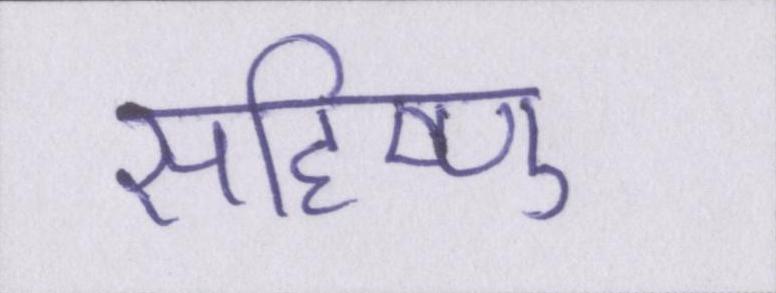 सहिष्णु